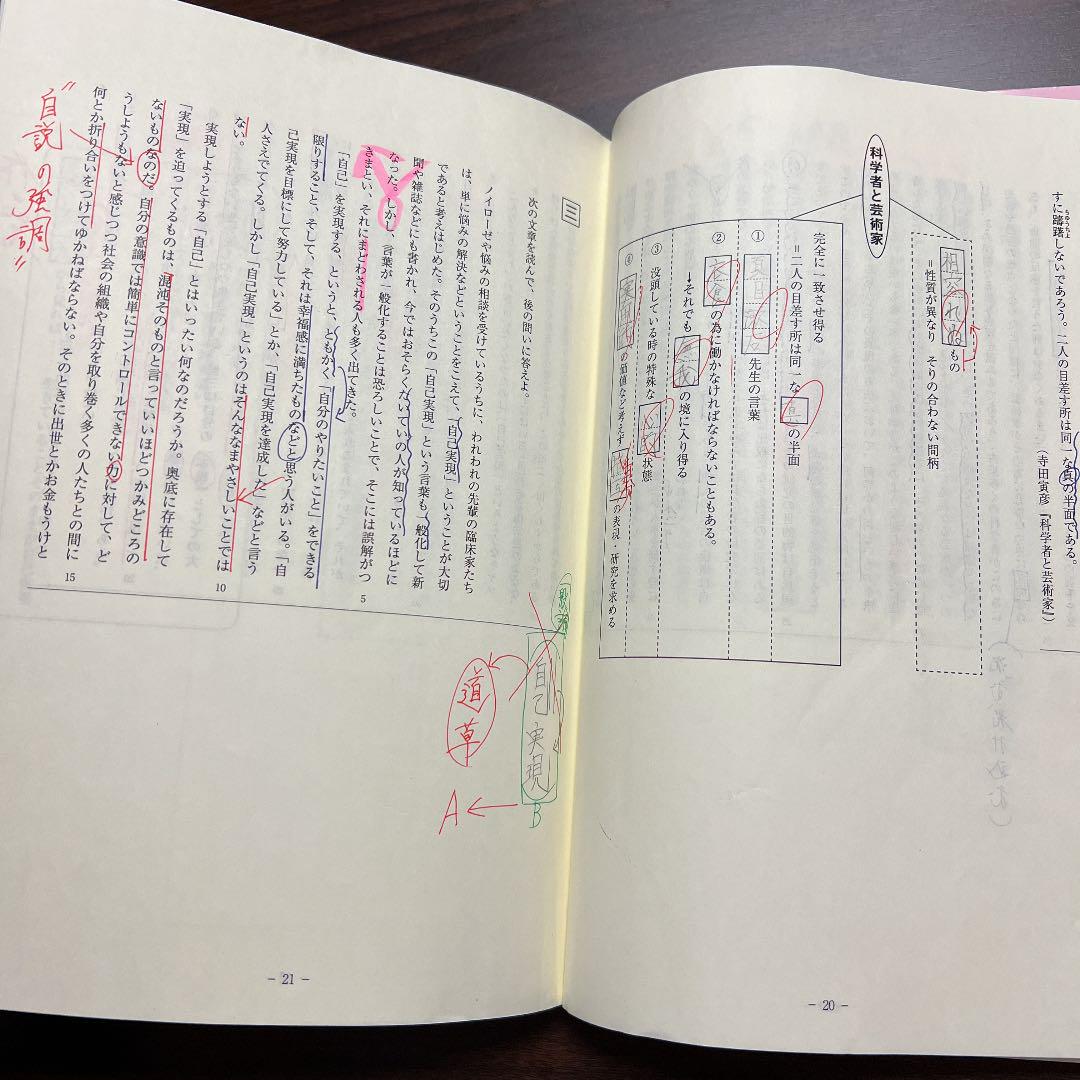 すに躊躇しないであろう。二人の目差す所は同一な真の半面である。
ちゅうちょ
(寺田寅彦『科学者と芸術家』)
科学者と芸術家
相容れぬもの
=性質が異なり そりの合わない間柄
完全に一致させ得る
=二人の目差す所は同一な真の半面
① 夏目漱石先生の言葉
② 衣食の為に働かなければならないこともある。
→それでも の境に入り得る
③ 没頭している時の特殊な 状態
④ の価値など考えず の表現・研究を求める
- 20 -
三
次の文章を読んで、後の問いに答えよ。
ノイローゼや悩みの相談を受けているうちに、われわれの先輩の臨床家たち
は、単に悩みの解決などということをこえて、「自己実現」ということが大切
であると考えはじめた。そのうちこの「自己実現」という言葉も一般化して新
聞や雑誌などにも書かれ、今ではおそらくたいていの人が知っているほどに
なった。しかし、言葉が一般化することは恐ろしいことで、そこには誤解がつ
きまとい、それにまどわされる人も多く出てきた。
「自己」を実現する、というと、ともかく「自分のやりたいこと」をできる
限りすること、そして、それは幸福感に満ちたものなどと思う人がいる。「自
己実現を目標にして努力している」とか、「自己実現を達成した」などと言う
人さえでてくる。しかし「自己実現」というのはそんななまやさしいことでは
ない。
実現しようとする「自己」とはいったい何なのだろうか。奥底に存在して
「実現」を迫ってくるものは、混沌そのものと言っていいほどつかみどころの
ないものなのだ。自分の意識では簡単にコントロールできない力に対して、ど
うしようもないと感じつつ社会の組織や自分を取り巻く多くの人たちとの間に
何とか折り合いをつけてゆかねばならない。そのときに出世とかお金もうけと
5
10
15
"自説の強調"
自己実現
B
道草
A
- 21 -